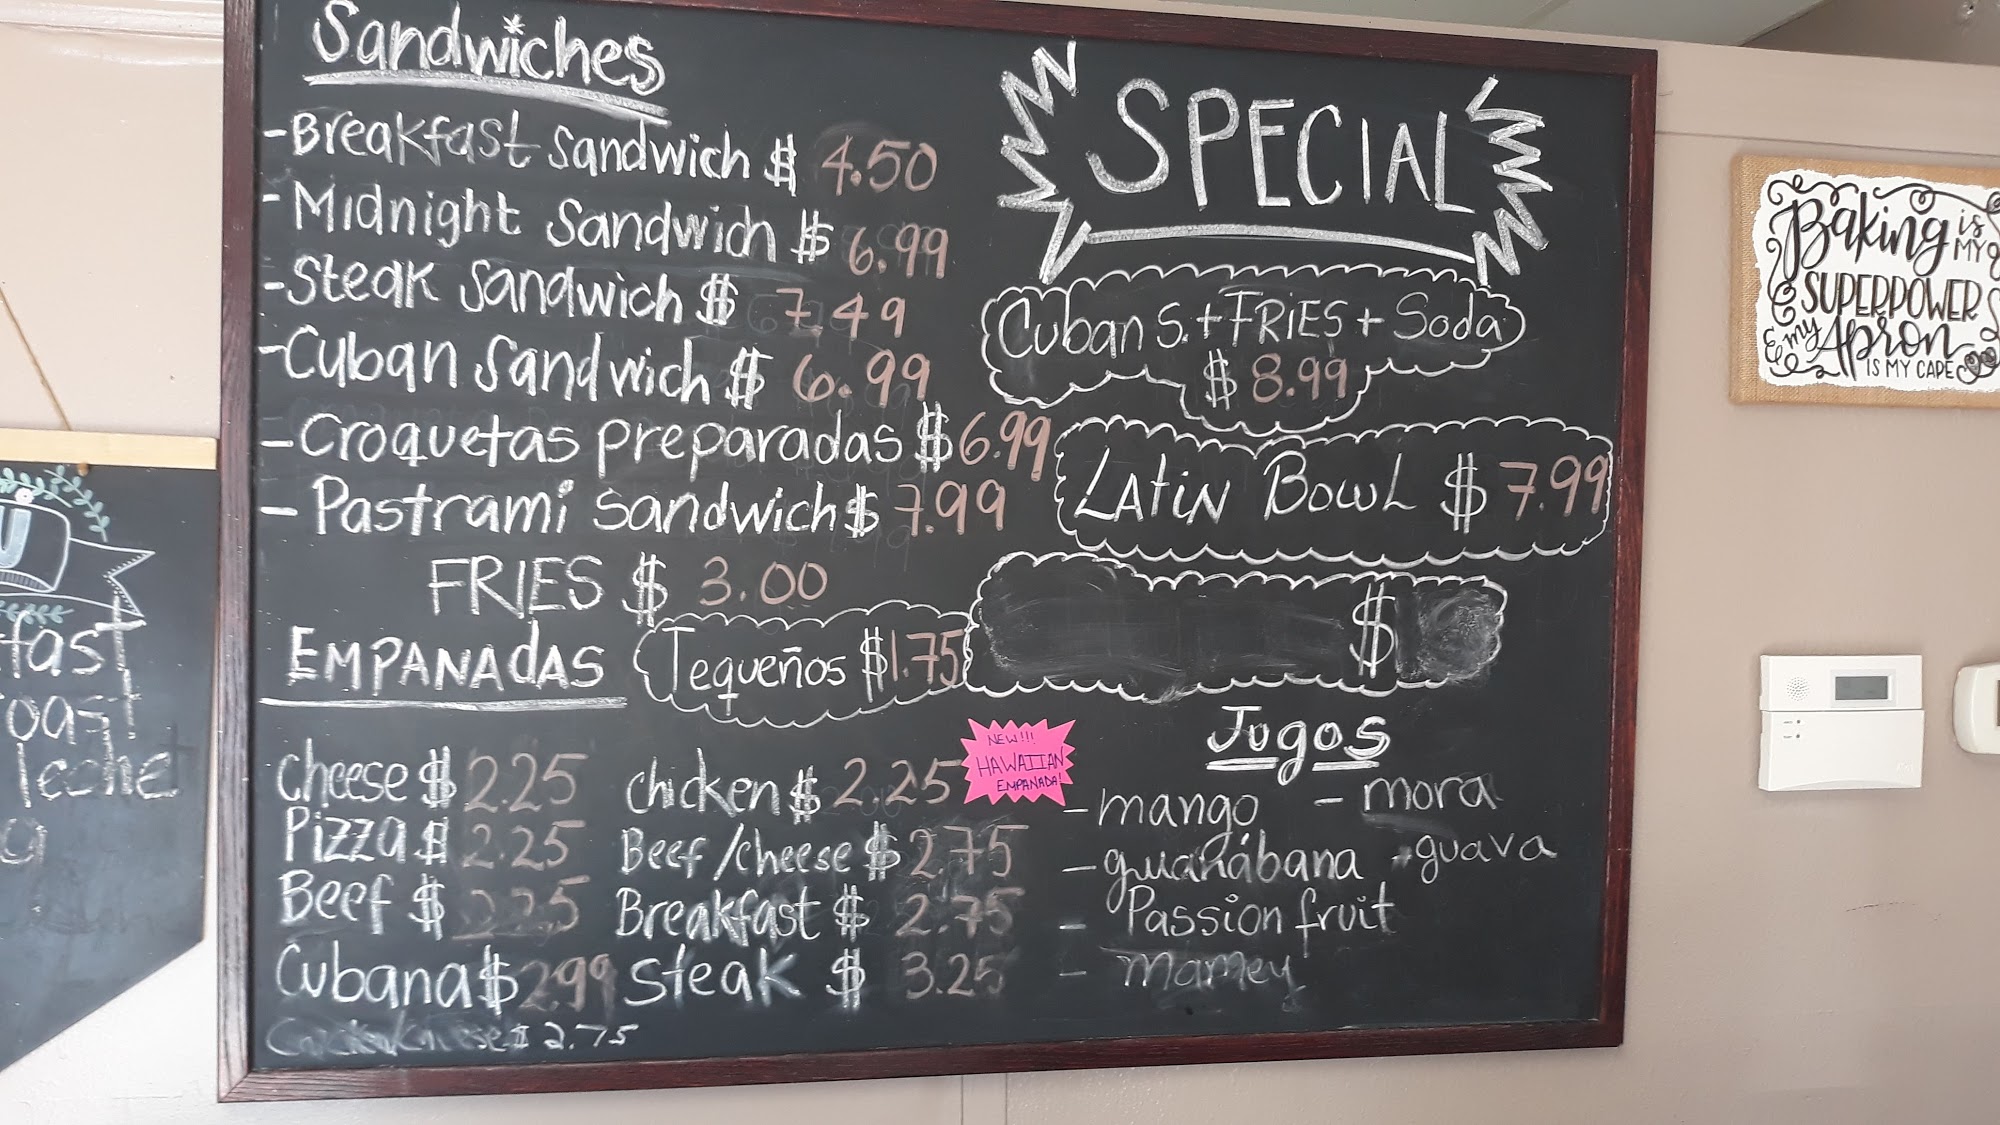 Sandwiches
-Breakfast sandwich $ 4.50
-Midnight sandwich $ 6.99
-Steak sandwich $ 7.49
-Cuban sandwich $ 6.99
-Croquetas preparadas $ 6.99
-Pastrami sandwich $ 7.99
FRIES $ 3.00
SPECIAL
Cuban S. + FRIES + Soda
$ 8.99
LAtiN BOWL $ 7.99
$
EMPANAdAS
Tequeños $1.75
Cheese $ 2.25
Pizza $ 2.25
Beef $ 2.25
Cubana $ 2.99
Chicken/cheese $ 2.75
chicken $ 2.25
Beef/cheese $ 2.75
Breakfast $ 2.75
Steak $ 3.25
NEW!!!
HAWAIIAN
EMPANADA!
Jugos
-mango -mora
-guanábana -guava
- Passion fruit
- mamey
Baking is
MY
SUPERPOWER
& my Apron
IS MY CAPE
U
fast
oast
leche
a